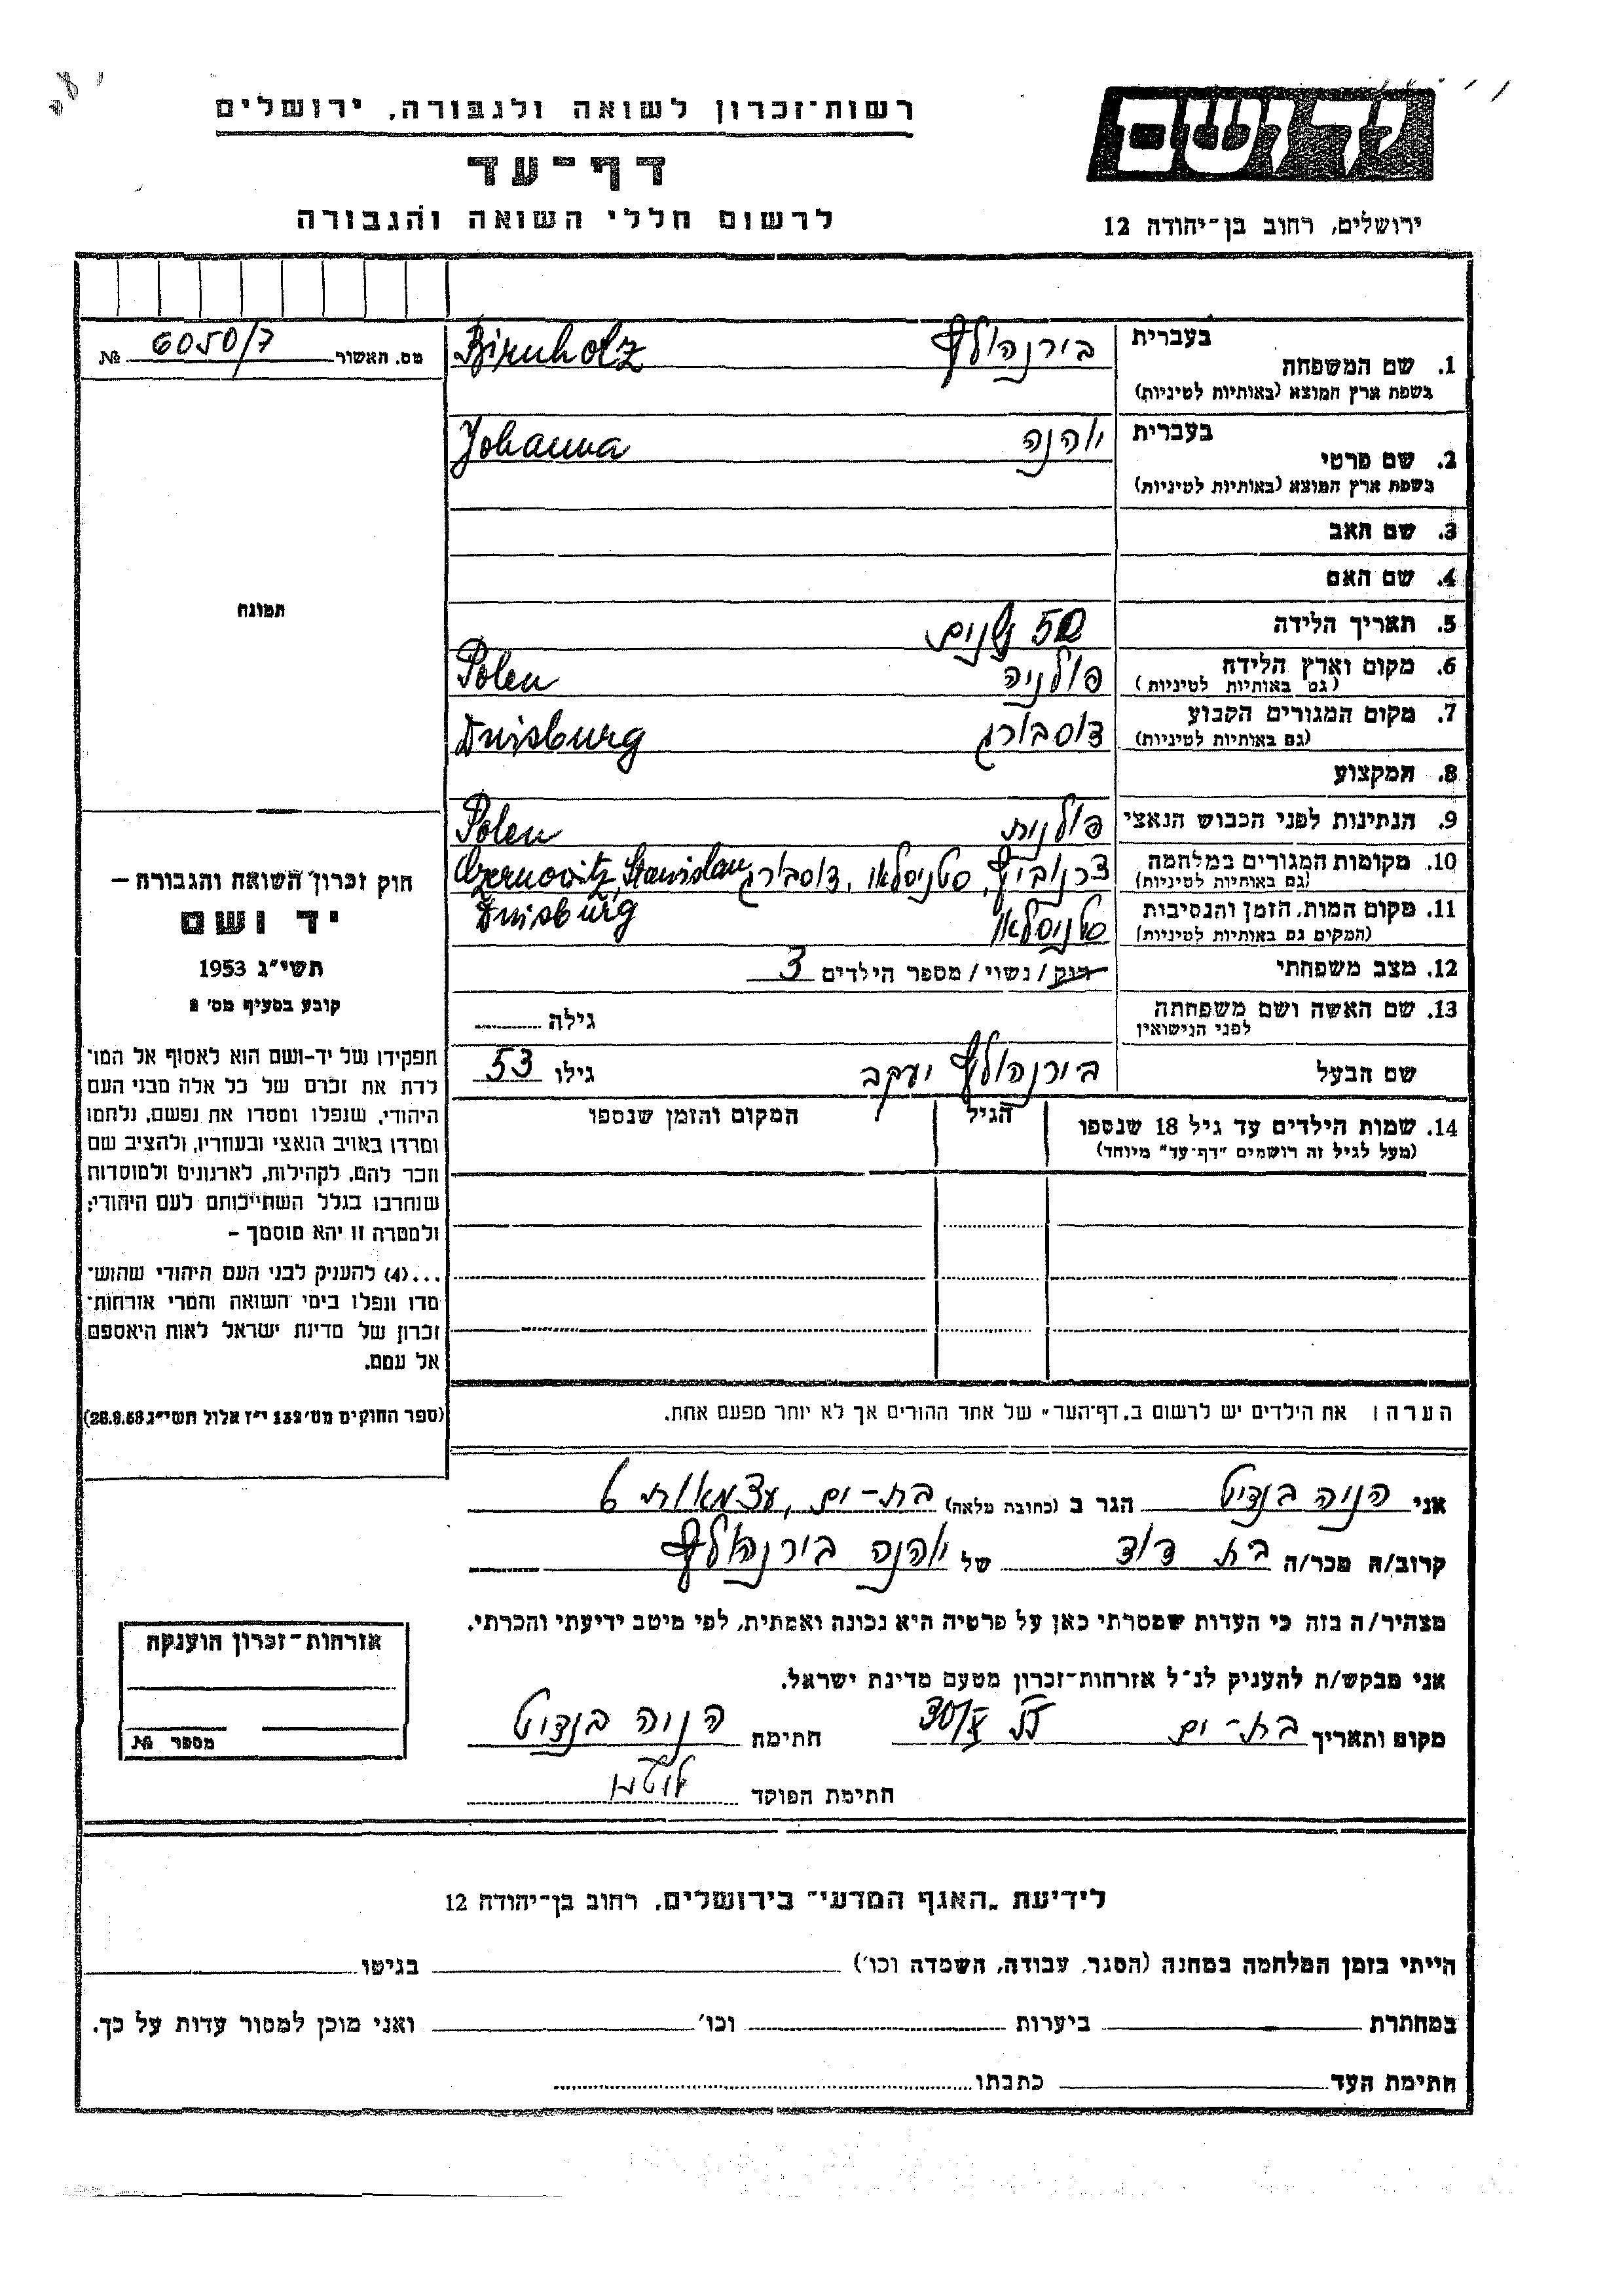 רשות־זכרון לשואה ולגבורה, ירושלים
יד ושם
דף־עד
לרשום חללי השואה והגבורה
ירושלים, רחוב בן־יהודה 12
מס. האשור 6050/7 №
בעברית בירנהולץ Birnholz
1. שם המשפחה
בשפת ארץ המוצא (באותיות לטיניות)
בעברית יוהנה Johanna
2. שם פרטי
בשפת ארץ המוצא (באותיות לטיניות)
3. שם האב
4. שם האם
תמונה
5. תאריך הלידה 50 שנים
6. מקום וארץ הלידה פולניה Polen
(גם באותיות לטיניות)
7. מקום המגורים הקבוע דוסבורג Duisburg
(גם באותיות לטיניות)
8. המקצוע
9. הנתינות לפני הכבוש הנאצי פולנית Polen
10. מקומות המגורים במלחמה צרנוביץ, סטניסלאו, דוסבורג Czernowitz, Stanislau
(גם באותיות לטיניות) Duisburg
11. מקום המות, הזמן והנסיבות סטניסלאו
(המקום גם באותיות לטיניות)
12. מצב משפחתי רווק / נשוי / מספר הילדים 3
13. שם האשה ושם משפחתה גילה
לפני הנישואין
שם הבעל בירנהולץ יעקב גילו 53
14. שמות הילדים עד גיל 18 שנספו הגיל המקום והזמן שנספו
(מעל לגיל זה רושמים "דף־עד" מיוחד)
חוק זכרון השואה והגבורה —
יד ושם
תשי"ג 1953
קובע בסעיף מס' 2
תפקידו של יד־ושם הוא לאסוף אל המו־
לדת את זכרם של כל אלה מבני העם
היהודי, שנפלו ומסרו את נפשם, נלחמו
ומרדו באויב הנאצי ובעוזריו, ולהציב שם
וזכר להם, לקהילות, לארגונים ולמוסדות
שנחרבו בגלל השתייכותם לעם היהודי;
ולמטרה זו יהא מוסמך –
...(4) להעניק לבני העם היהודי שהוש־
מדו ונפלו בימי השואה והמרי אזרחות־
זכרון של מדינת ישראל לאות היאספם
אל עמם.
(ספר החוקים מס' 132 י"ז אלול תשי"ג 28.8.53)
הערה: את הילדים יש לרשום ב„דף־העד" של אחד ההורים אך לא יותר מפעם אחת.
אני הניה בנדיט הגר ב (כתובת מלאה) בת-ים, עצמאות 6
קרוב/ה מכר/ה בת דוד של יוהנה בירנהולץ
מצהיר/ה בזה כי העדות שמסרתי כאן על פרטיה היא נכונה ואמתית, לפי מיטב ידיעתי והכרתי.
אני מבקש/ת להעניק לנ"ל אזרחות־זכרון מטעם מדינת ישראל.
מקום ותאריך בת-ים 30/X חתימה הניה בנדיט
חתימת הפוקד
אזרחות־זכרון הוענקה
מספר №
לידיעת „האגף המדעי" בירושלים, רחוב בן־יהודה 12
הייתי בזמן המלחמה במחנה (הסגר, עבודה, השמדה וכו') בגיטו
במחתרת ביערות וכו' ואני מוכן למסור עדות על כך.
חתימת העד כתבתו